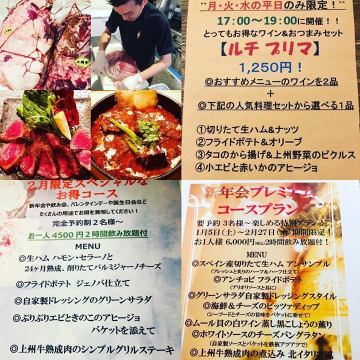 〝月・火・水の平日のみ限定！〟
17：00〜19：00に開催！！
とってもお得なワイン＆おつまみセット
【ルチ プリマ】
1,250円！
◎おすすめメニューのワインを2品
＋
◎下記の人気料理セットから選べる1品
①切りたて生ハム＆ナッツ
②フライドポテト＆オリーブ
③タコのから揚げ＆上州野菜のピクルス
④小エビと赤いかのアヒージョ
2月限定スペシャルな
お得コース
新年会や飲み会、バレンタインデーや誕生日会など
たくさんの用途でお得を満喫してください！
完全予約制2名様〜
お一人4500円2時間飲み放題付
MENU
◎生ハム ハモン・セラーノと
24ヶ月熟成、削りたてパルミジャーノチーズ
◎フライドポテト ジェノバ仕立て
◎自家製ドレッシングのグリーンサラダ
◎ぷりぷりエビときのこのアヒージョ
バケットを添えて
◎上州牛熟成肉のシンプルグリルステーキ
新年会プレミアム
コースプラン
要予約3名様〜楽しめる特別プラン
1月5日(土)〜2月27日
お1人様 6,000円 2時間飲み放題付
MENU
◎スペイン産切りたて生ハム アンサンブル
◎アンチョビ フライドポテト
◎グリーンサラダ自家製ドレッシングスタイル
◎海鮮＆チーズのピッツァ
◎ムール貝の白ワイン蒸し黒こしょうの薫り
◎ホワイトソースのチーズパングラタン
◎上州牛熟成肉の煮込み ピイタリア風